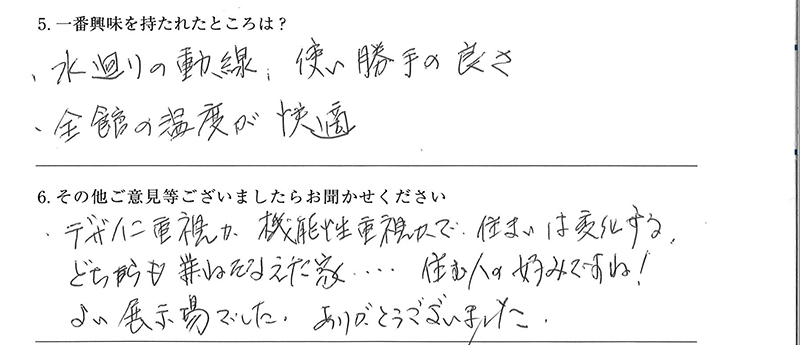 5. 一番興味を持たれたところは?
、水廻りの動線、使い勝手の良さ
、全館の温度が快適
6. その他ご意見等ございましたらお聞かせください
・デザイン重視か機能性重視かで住まいは変化する。
どちらも兼ねそなえた家‥‥住む人の好みですね!
よい展示場でした。ありがとうございました。